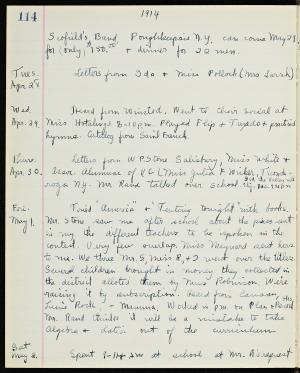 114 1914
Scofield's Band, Poughkeepsie N.Y. can come May 29,
for (only) $150.00 & dinner for 22 men.
Tues. Letters from Ida & Miss Pollock (Mrs Sarah)
Apr. 28
Wed. Heard from Winsted, Went to Choir Social at
Apr. 29. Miss Hotaling's 8-10 p.m. Played Flip & Tuxedo & practised
hymns. Catalog from Saint French.
Thurs. Letters from W.P. Stone Salisbury, Miss White &
Apr. 30. Assoc. Alumnae of V.C. (Miss Julia F. Wicker, Ticonde-
roga N.Y. Mr Rand talked over school.
Fri. Tried "America" & "Tenting Tonight" with books.
May 1. Mr. Stone saw me after school about the pieces sent
in by the different teachers to be spoken in the
contest. Very few overlap. Miss Maynard sent hers
to me. We three Mr. S, Miss R, & I went over the titles.
Several children brought in money they collected in
the district alloted them by Miss Robinson. We're
raising it by subscription. Heard from Canaan,
Mamma, Worked in p.m. on Plan &
Mr. Rand thinks it will be a mistake to take
Algebra & Latin out of the curriculum
Sat.
May 2. Spent at school at Mr.